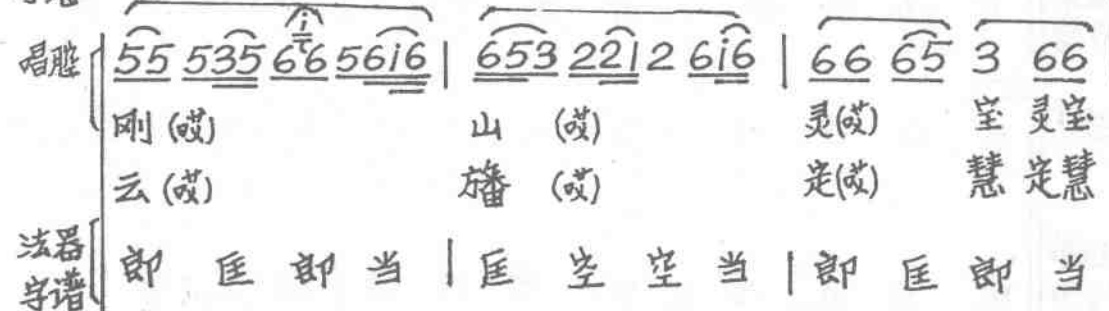 唱腔 55 535 66 56i6 | 653 221 2 6i6 | 66 65 3 66
刚(哎) 山 (哎) 灵(哎) 宝 灵宝
云(哎) 旛 (哎) 定(哎) 慧 定慧
法器字谱 郎 匡 郎 当 | 匡 空 空 当 | 郎 匡 郎 当